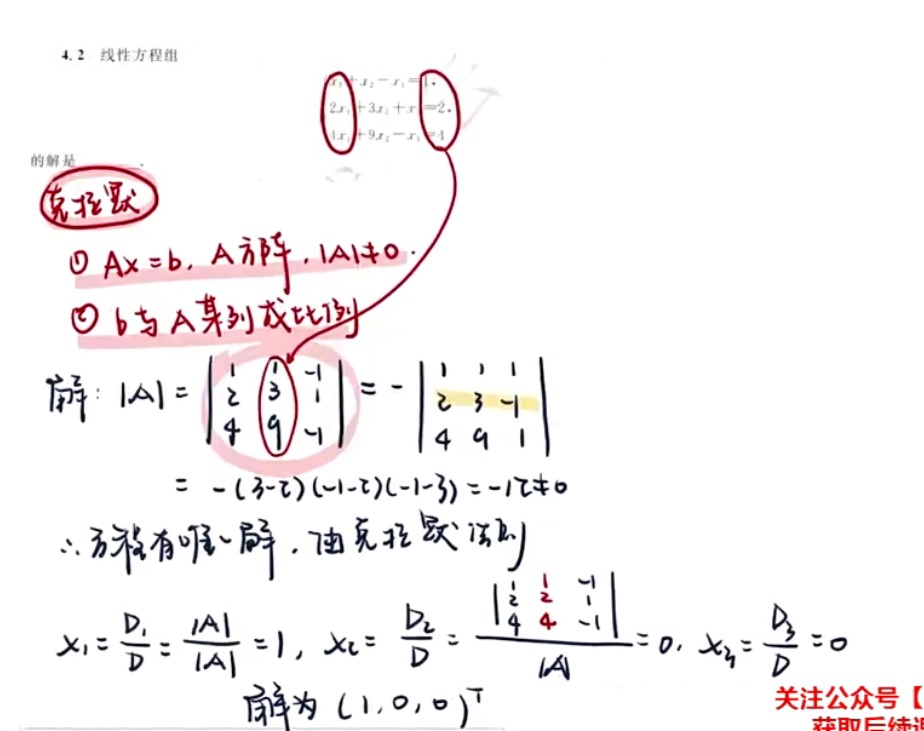 4.2 线性方程组
x₁+x₂-x₃=1,
2x₁+3x₂+x₃=2,
4x₁+9x₂-x₃=4
的解是______.
克拉默
① Ax=b, A方阵, |A|≠0.
② b与A某列成比例
解: |A| = |1 1 -1; 2 3 1; 4 9 -1| = - |1 1 1; 2 3 -1; 4 9 1|
= -(3-2)(-1-2)(-1-3) = -12≠0
∴方程有唯一解, 由克拉默法则
x₁ = D₁/D = |A|/|A| = 1, x₂ = D₂/D = |1 1 -1; 2 2 1; 4 4 -1|/|A| = 0, x₃ = D₃/D = 0
解为 (1,0,0)ᵀ
关注公众号【
获取后续